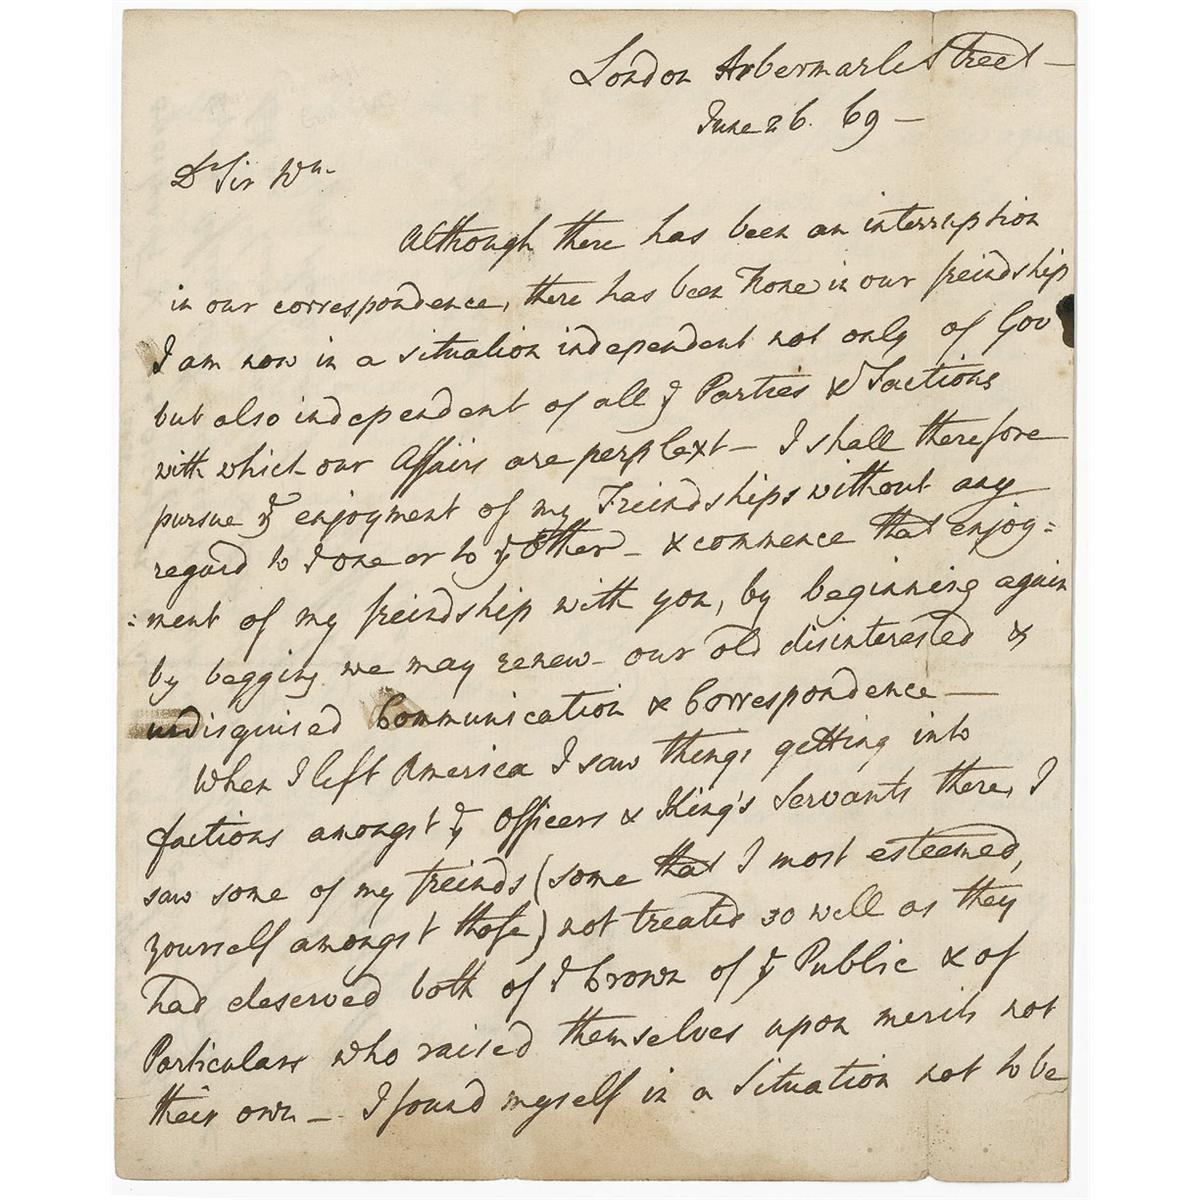 London Arbermarle Street –
June 26. 69 –
Dr Sir Wm.
Although there has been an interruption
in our correspondence, there has been None in our freindship
I am now in a situation independent not only of Gov
but also independent of all ye Parties & Factions
with which our Affairs are perplext – I shall therefore
pursue ye enjoyment of my Freindships without any
regard to ye one or to ye Other – & commence that enjoy=
=ment of my freindship with you, by beginning again
by begging we may renew our old disinterested &
undisguised Communication & Correspondence –
When I left America I saw things getting into
factions amongst ye Officers & King's Servants there, I
saw some of my freinds (some that I most esteemed,
yourself amongst those) not treated so well as they
had deserved both of ye Crown of ye Public & of
Particulars who raised themselves upon merits not
their own – I found myself in a Situation not to be